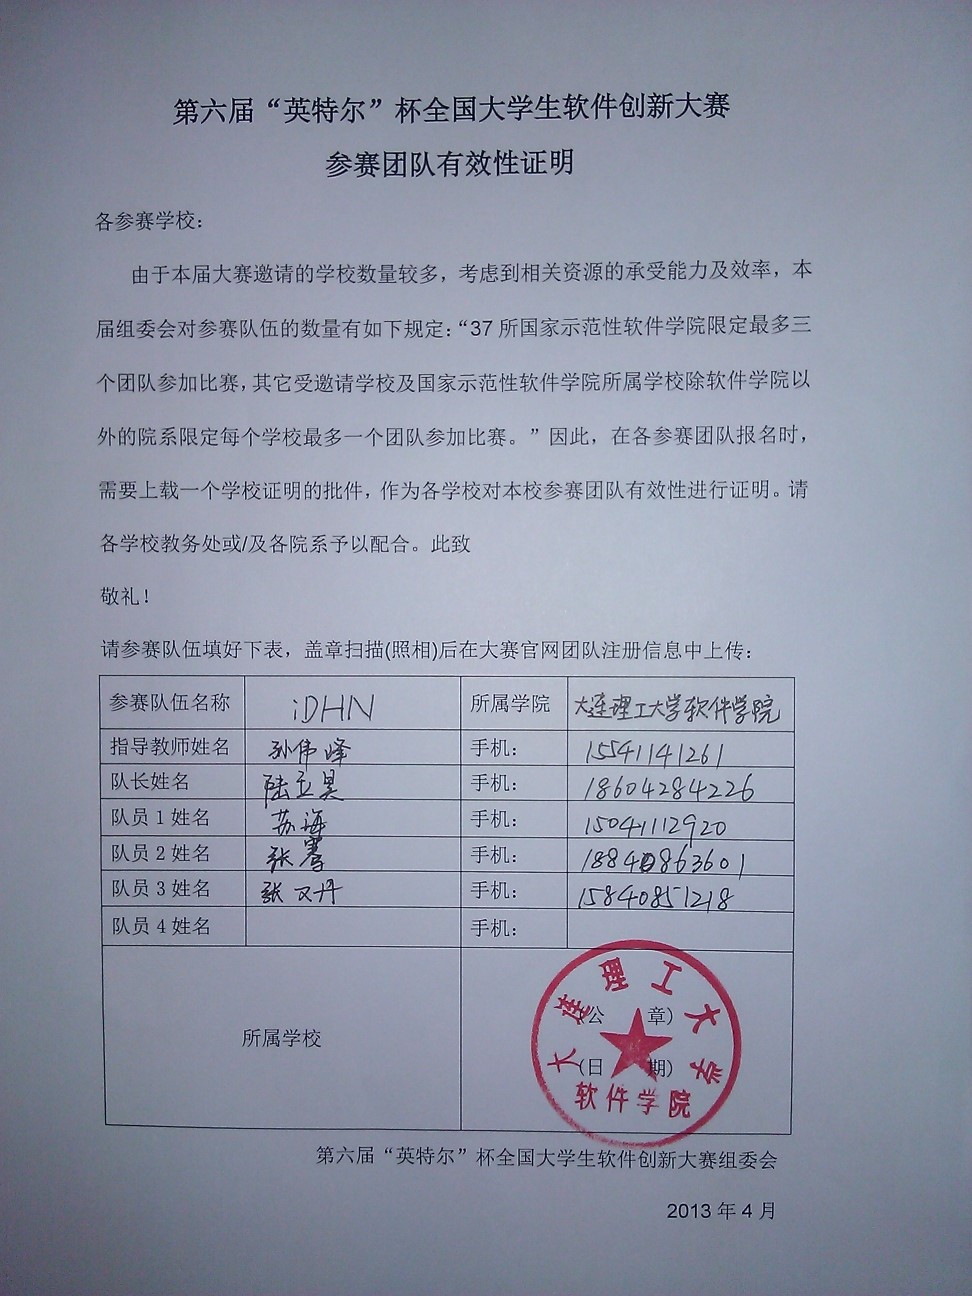 第六届“英特尔”杯全国大学生软件创新大赛
参赛团队有效性证明
各参赛学校：
由于本届大赛邀请的学校数量较多，考虑到相关资源的承受能力及效率，本
届组委会对参赛队伍的数量有如下规定：“37 所国家示范性软件学院限定最多三
个团队参加比赛，其它受邀请学校及国家示范性软件学院所属学校除软件学院以
外的院系限定每个学校最多一个团队参加比赛。”因此，在各参赛团队报名时，
需要上载一个学校证明的批件，作为各学校对本校参赛团队有效性进行证明。请
各学校教务处或/及各院系予以配合。此致
敬礼！
请参赛队伍填好下表，盖章扫描(照相)后在大赛官网团队注册信息中上传：
参赛队伍名称 iDHN 所属学院 大连理工大学软件学院
指导教师姓名 孙伟峰 手机： 15541141261
队长姓名 陆立昊 手机： 18604284226
队员 1 姓名 苏海 手机： 15041112920
队员 2 姓名 张骞 手机： 18840863601
队员 3 姓名 张又丹 手机： 15840851218
队员 4 姓名 手机：
所属学校
(公 章)
(日 期)
大连理工大学
软件学院
第六届“英特尔”杯全国大学生软件创新大赛组委会
2013 年 4 月